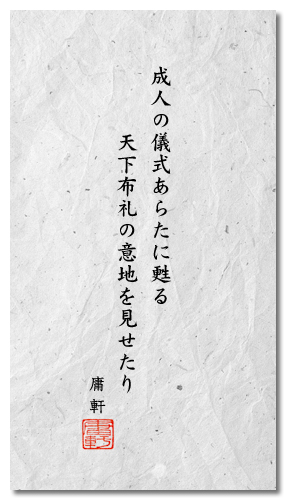 成人の儀式あらたに甦る
天下布礼の意地を見せたり
庸軒